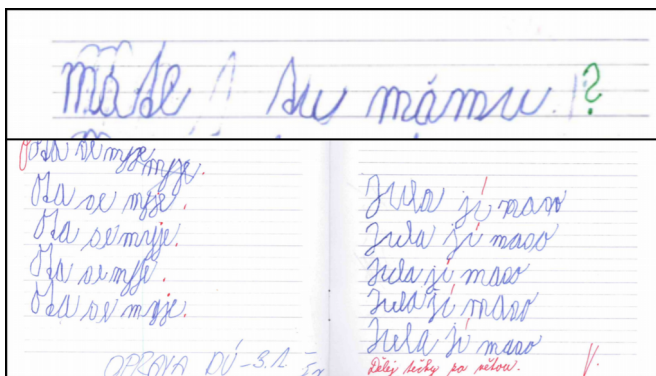 máte su mámu. ?
Ota se myje myje.
Ota se myje.
Ota se myje.
Ota se myje.
Ota se myje.
OPRAVA DÚ - 3. 1.
Jula jí maso
Jula jí maso
Jula jí maso
Jula jí maso
Jula jí maso
Dělej tečky za větou.